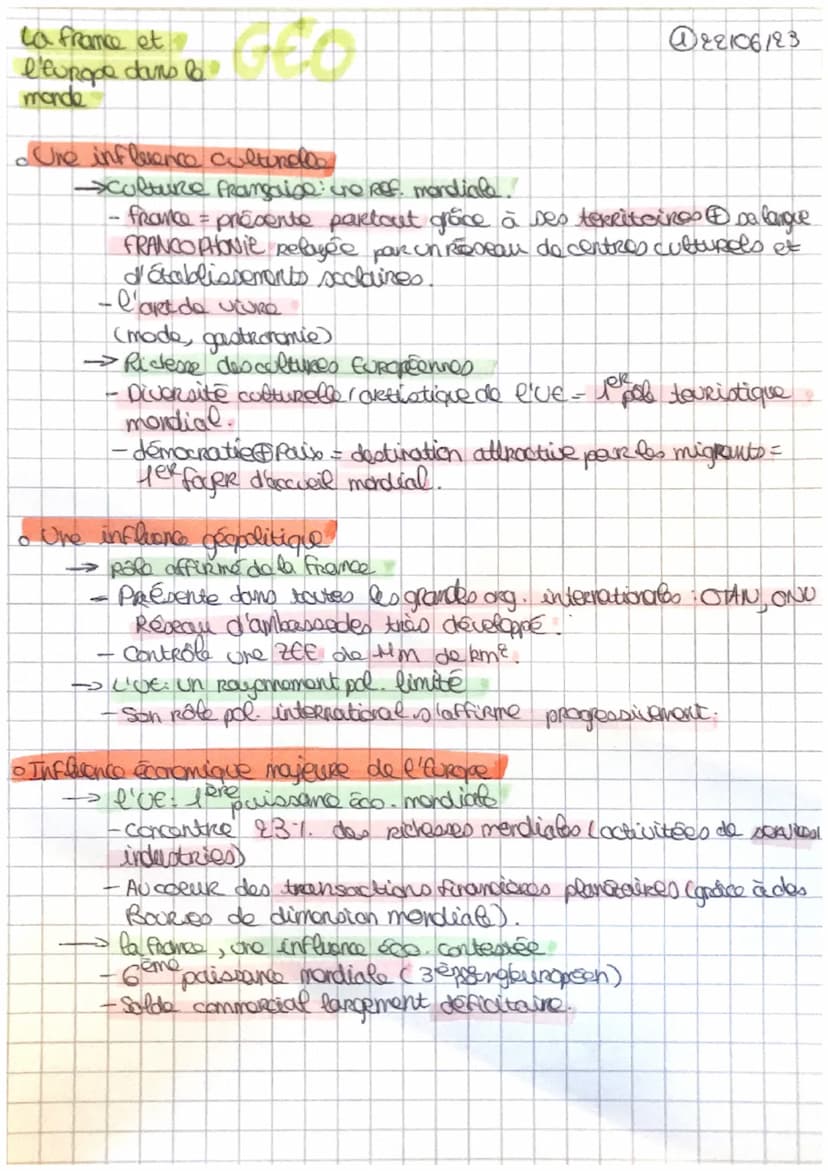 La france et
l'Europe dans le
monde
GÉO
① 22/06/23
Une influence culturelle
→ Culture française: une Réf. mondiale.
- france = présente partout grâce à ses territoires ⊕ sa langue
FRANCOPHONIE relayée par un réseau de centres culturels et
d'établissements scolaires.
- l'art de vivre
(mode, gastronomie)
→ Richesse des cultures Européennes
- Diversité culturelle / artistique de l'UE = 1er pôle touristique
mondial.
- démocratie ⊕ Paix = destination attractive pour les migrants =
1er foyer d'accueil mondial.
Une influence géopolitique
→ Rôle affirmé de la france
- Présente dans toutes les grandes org. internationales : OTAN, ONU
Réseau d'ambassades très développé.
- Contrôle une ZEE de 11m de km².
→ L'UE: un rayonnement pol. limité
- Son rôle pol. international s'affirme progressivement.
Influence économique majeure de l'Europe
→ l'UE: 1ère puissance éco. mondiale
- concentre 23% des richesses mondiales (activitées de services
industries)
- Au coeur des transactions financières planétaires (grâce à des
Bourses de dimension mondiale).
→ la france, une influence éco. contestée
- 6ème puissance mondiale (3ème rang européen)
- Solde commercial largement déficitaire.